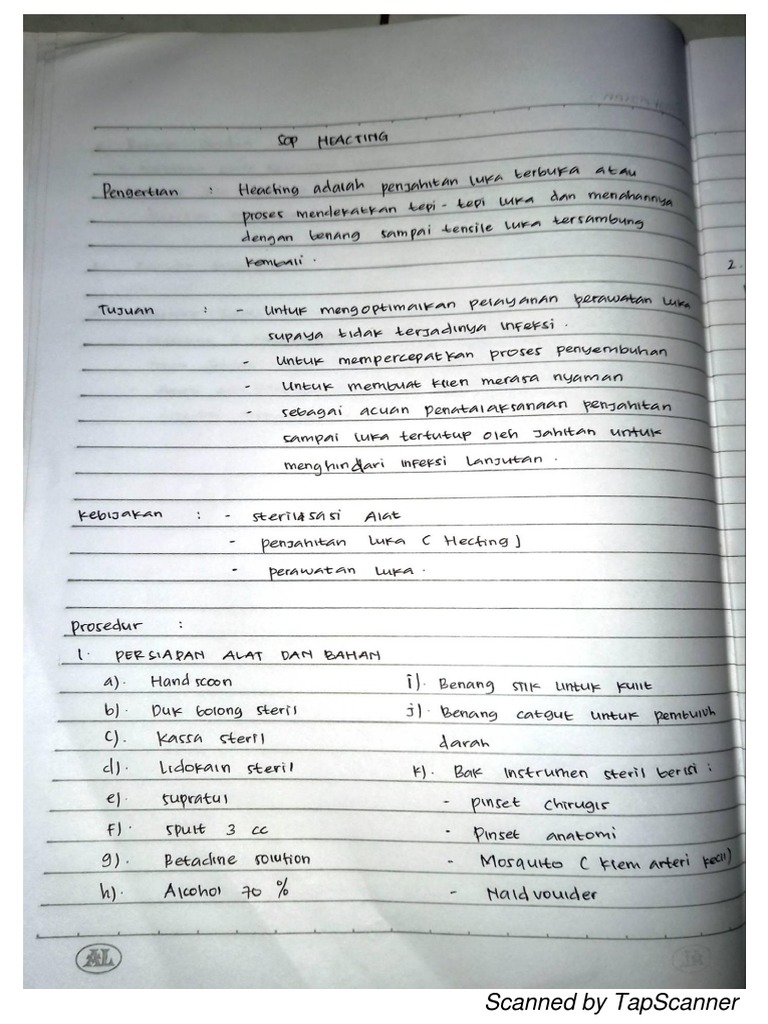 SOP HEACTING
Pengertian : Heacting adalah penjahitan luka terbuka atau
proses mendekatkan tepi - tepi luka dan menahannya
dengan benang sampai tensile luka tersambung
kembali.
Tujuan : - Untuk mengoptimalkan pelayanan perawatan luka
supaya tidak terjadinya infeksi.
- Untuk mempercepatkan proses penyembuhan
- Untuk membuat klien merasa nyaman
- sebagai acuan penatalaksanaan penjahitan
sampai luka tertutup oleh jahitan untuk
menghindari infeksi lanjutan.
Kebijakan : - sterilisasi Alat
- penjahitan luka ( Hecting )
- perawatan luka.
Prosedur :
1. PERSIAPAN ALAT DAN BAHAN
a). Hand scoon
b). Duk bolong steril
c). Kassa steril
d). Lidokain steril
e). supratul
f). spuit 3 cc
g). Betadine solution
h). Alcohol 70 %
i). Benang silk untuk kulit
j). Benang catgut untuk pembuluh
darah
k). Bak instrumen steril berisi :
- pinset chirugis
- Pinset anatomi
- Mosquito ( klem arteri kecil )
- Nald voulder
AL
2.
Scanned by TapScanner